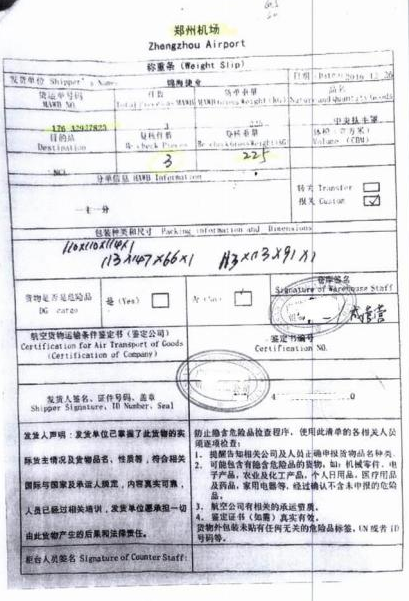 郑州机场
Zhengzhou Airport
称重条 (Weight Slip)
发货单位 Shipper's Name 锦海捷亚 日期 2016.12.26
货运单号码 件数 货单重量 品名
MAWB NO.
目的站 复核件数 复核重量 体积(立方米)
Destination Re-check Pieces Re-check Gross Weight(KG) Volume (CBM)
3 225
NO. 分单信息 HAWB Information
转关 Transfer
报关 Custom ✓
包装种类和尺寸 Packing information and Dimensions
110x110x114x1
113x147x66x1 113x113x91x1
仓库签名
Signature of Warehouse Staff
货物是否是危险品 是 (Yes) 否 (No)
DG cargo
航空货物运输条件鉴定书(鉴定公司) 鉴定书编号
Certification for Air Transport of Goods Certification NO.
(Certification of Company)
发货人签名、证件号码、盖章
Shipper Signature, ID Number, Seal
发货人声明:发货单位已掌握了此货物的实
际货主情况及货物品名、性质等,符合相关
国际与国家及承运人规定,内容真实可靠,
人员已经过相关培训,发货单位愿承担一切
由此货物产生的后果和法律责任。
防止隐含危险品检查程序,使用此清单的各相关人员
须逐项检查:
1、提醒告知相关公司及人员正确申报货物品名种类.
2、可能包含有隐含危险品的货物,如:机械零件、电
子产品,农业及化工产品,个人日用品,医疗用品
及药品,家用电器等,经过确认不含未申报的危险
品。
3、航空公司有相关的承运资质。
4、鉴定证书(如需)真实有效。
货物外包装未贴有任何无关的危险品标签、UN或者ID
号码等。
柜台人员签名 Signature of Counter Staff: